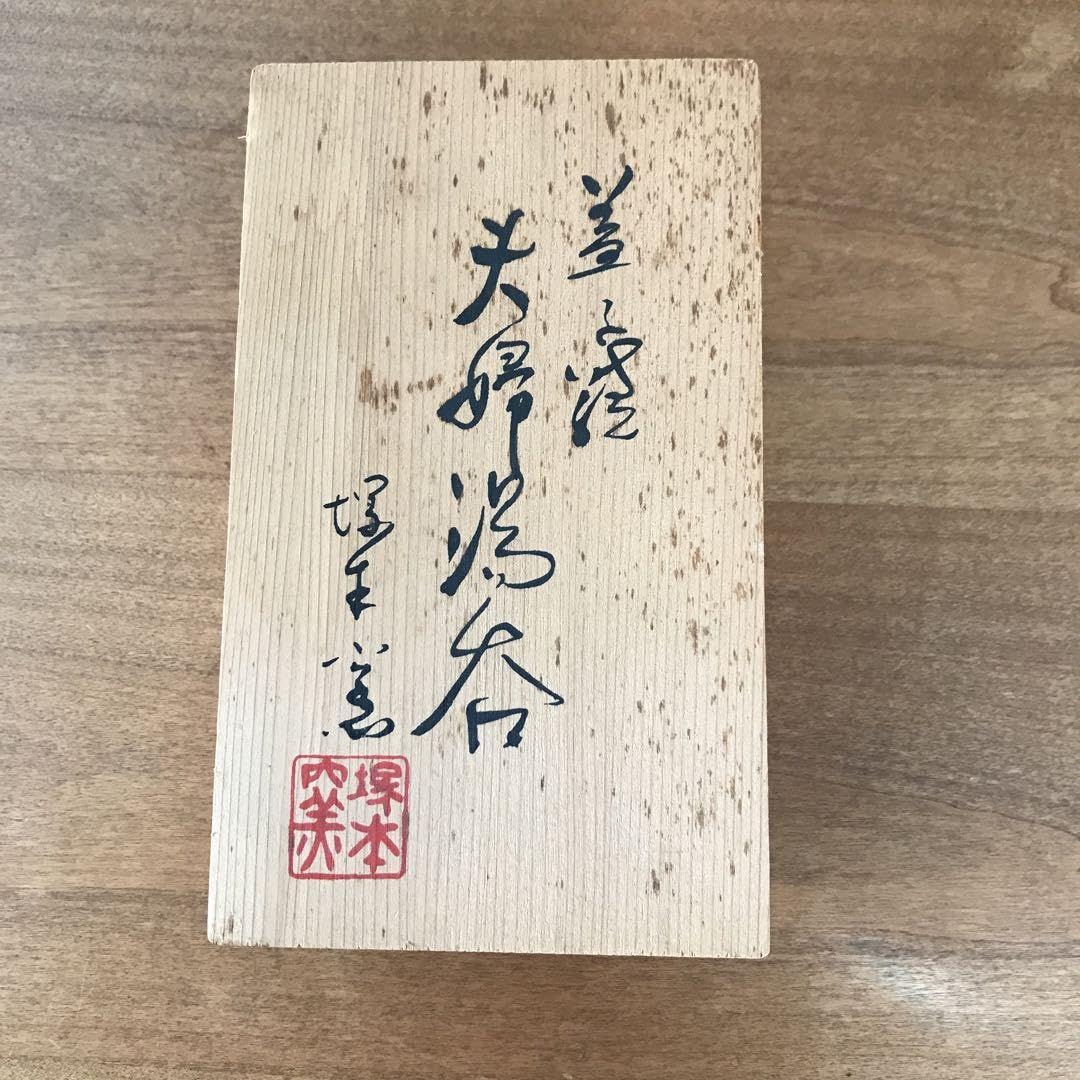 益子焼
夫婦湯呑
塚本窯
塚本
窯